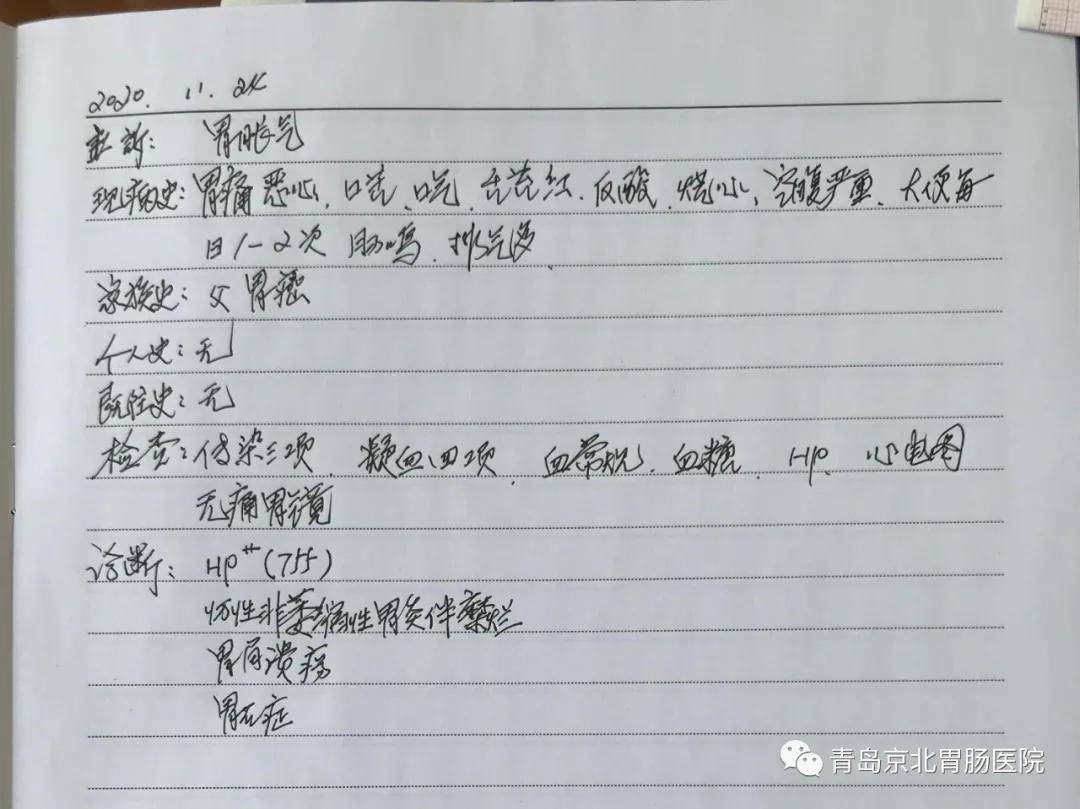 2020. 11. 24
主诉: 胃胀气
现病史: 胃痛 恶心、口苦、口气、舌苔红、反酸、烧心、空腹严重、大便每
日1-2次 肠鸣、排气多、
家族史: 父 胃癌
个人史: 无
既往史: 无
检查: 传染三项、凝血四项、血常规、血糖、HP、心电图
无痛胃镜
诊断: HP++(755)
慢性非萎缩性胃炎伴糜烂
胃角溃疡
胃石症
青岛京北胃肠医院